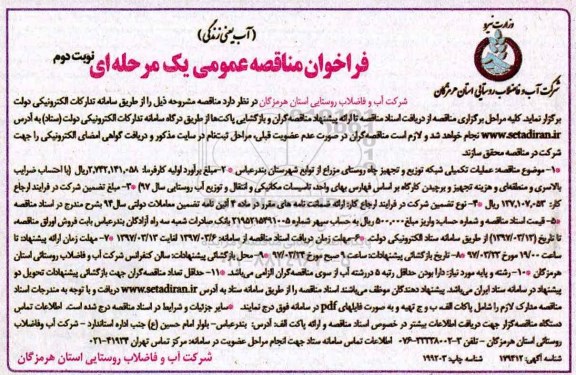 (آب یعنی زندگی)
وزارت نیرو
شرکت آب و فاضلاب روستایی استان هرمزگان
فراخوان مناقصه عمومی یک مرحله ای
نوبت دوم
شرکت آب و فاضلاب روستایی استان هرمزگان در نظر دارد مناقصه مشروحه ذیل را از طریق سامانه تدارکات الکترونیکی دولت
برگزار نماید. کلیه مراحل برگزاری مناقصه از دریافت اسناد مناقصه تا ارائه پیشنهاد مناقصه‌گران و بازگشایی پاکت‌ها از طریق درگاه سامانه تدارکات الکترونیکی دولت (ستاد) به آدرس
www.setadiran.ir انجام خواهد شد و لازم است مناقصه‌گران در صورت عدم عضویت قبلی، مراحل ثبت‌نام در سایت مذکور و دریافت گواهی امضای الکترونیکی را جهت
شرکت در مناقصه محقق سازند
۱- موضوع مناقصه: عملیات تکمیلی شبکه توزیع و تجهیز چاه روستای مزراع از توابع شهرستان بندرعباس * ۲-مبلغ برآورد اولیه کارفرما: ۲,۷۴۲,۱۴۱,۰۵۸ریال (با احتساب ضرایب
بالاسری و منطقه‌ای و هزینه تجهیز و برچیدن کارگاه بر اساس فهارس بهای واحد، تاسیسات مکانیکی و انتقال و توزیع آب روستایی سال ۹۷) * ۳-مبلغ تضمین شرکت در فرایند ارجاع
کار: ۱۳۷,۱۰۷,۰۵۳ ریال * ۴- نوع تضمین شرکت در فرایند ارجاع کار: ارائه ضمانت‌نامه های مورد قبول مفاد ماده ۴ آیین نامه تضمین معاملات دولتی سال۹۴ بشرح مندرج در اسناد مناقصه
۵- قیمت اسناد مناقصه و شماره حساب: واریز مبلغ ۵۰۰,۰۰۰ریال به حساب سپهر به شماره ۲۱۹۵۲۱۵۳۹۱۰۰۵ بانک صادرات شعبه سه راه آزادگان بندرعباس بابت فروش اوراق مناقصه
تا تاریخ (۱۳۹۷/۰۳/۱۲) از طریق سامانه ستاد الکترونیکی دولت. * ۶- مهلت زمان دریافت اسناد مناقصه: از سامانه ۱۳۹۷/۰۳/۶ لغایت ۱۳۹۷/۰۳/۱۲ * ۷- مهلت زمان ارائه پیشنهادات: تا
ساعت ۱۹/۰۰ مورخ ۹۷/۰۳/۲۲ * ۸- تاریخ بازگشائی پیشنهادات: ساعت ۹ صبح مورخ ۹۷/۰۳/۲۳ * ۹- محل بازگشائی پیشنهادات: سالن کنفرانس شرکت آب و فاضلاب روستائی استان
هرمزگان * ۱۰- رشته و پایه مورد نیاز: دارا بودن حداقل رتبه ۵ در رشته آب از سوی مناقصه‌گران الزامی می‌باشد. * ۱۱- حداقل تعداد مناقصه‌گران جهت بازگشائی پیشنهادات تحویل دو
پیشنهاد در سامانه ستاد ایران می‌باشد. پیشنهاددهندگان می‌بایستی اسناد مناقصه را از طریق سامانه ستاد به آدرس www.setadiran.ir دریافت و با توجه به مندرجات اسناد
مناقصه مدارک لازم را شامل پاکات الف، ب و ج تهیه و به صورت فایلهای pdf در سامانه فوق درج نمایند. * سایر جزئیات و شرایط در اسناد مناقصه درج شده است. اطلاعات تماس
دستگاه مناقصه‌گزار جهت دریافت اطلاعات بیشتر در خصوص اسناد مناقصه و ارائه پاکت الف: آدرس: بندرعباس- بلوار امام حسین (ع) جنب اداره استاندارد - شرکت آب وفاضلاب
روستائی استان هرمزگان - تلفن ۳-۰۷۶-۳۳۳۳۸۰۰۲ اطلاعات تماس سامانه ستاد جهت انجام مراحل عضویت در سامانه: مرکز تماس تهران ۴۱۹۳۴-۰۲۱
شناسه آگهی: ۱۷۹۴۱۲
شناسه چاپ: ۱۹۹۲۰۳
شرکت آب و فاضلاب روستایی استان هرمزگان